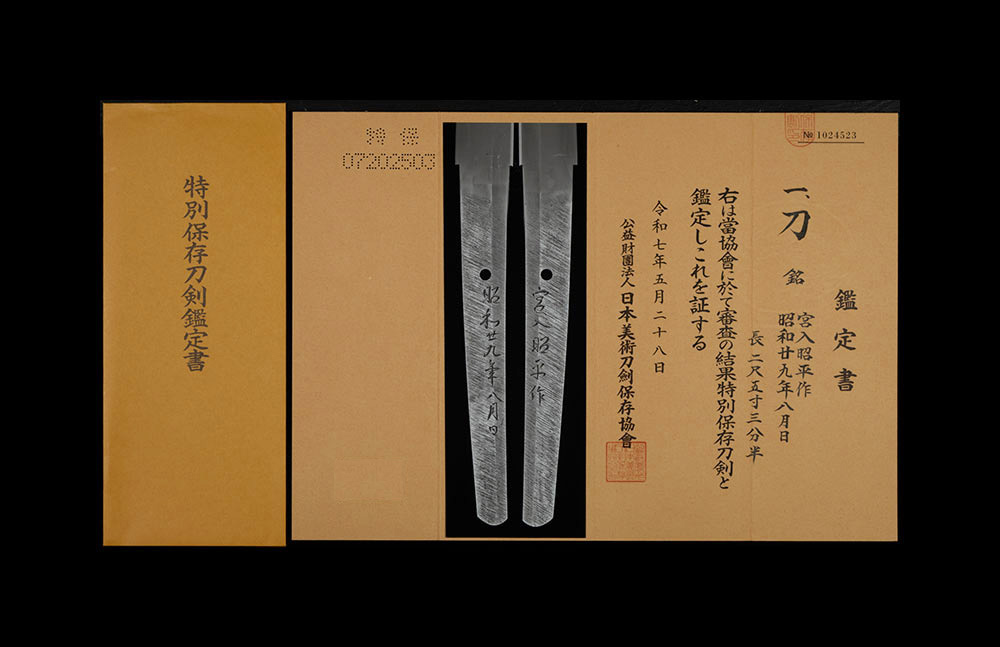 特別保存刀剣鑑定書
特保
07202503
№ 1024523
鑑定書
一、刀 銘 宮入昭平作
昭和廿九年八月日
長 二尺五寸三分半
右は當協會に於て審査の結果特別保存刀剣と
鑑定しこれを証する
令和七年五月二十八日
公益財團法人 日本美術刀劍保存協會
宮入昭平作
昭和廿九年八月日